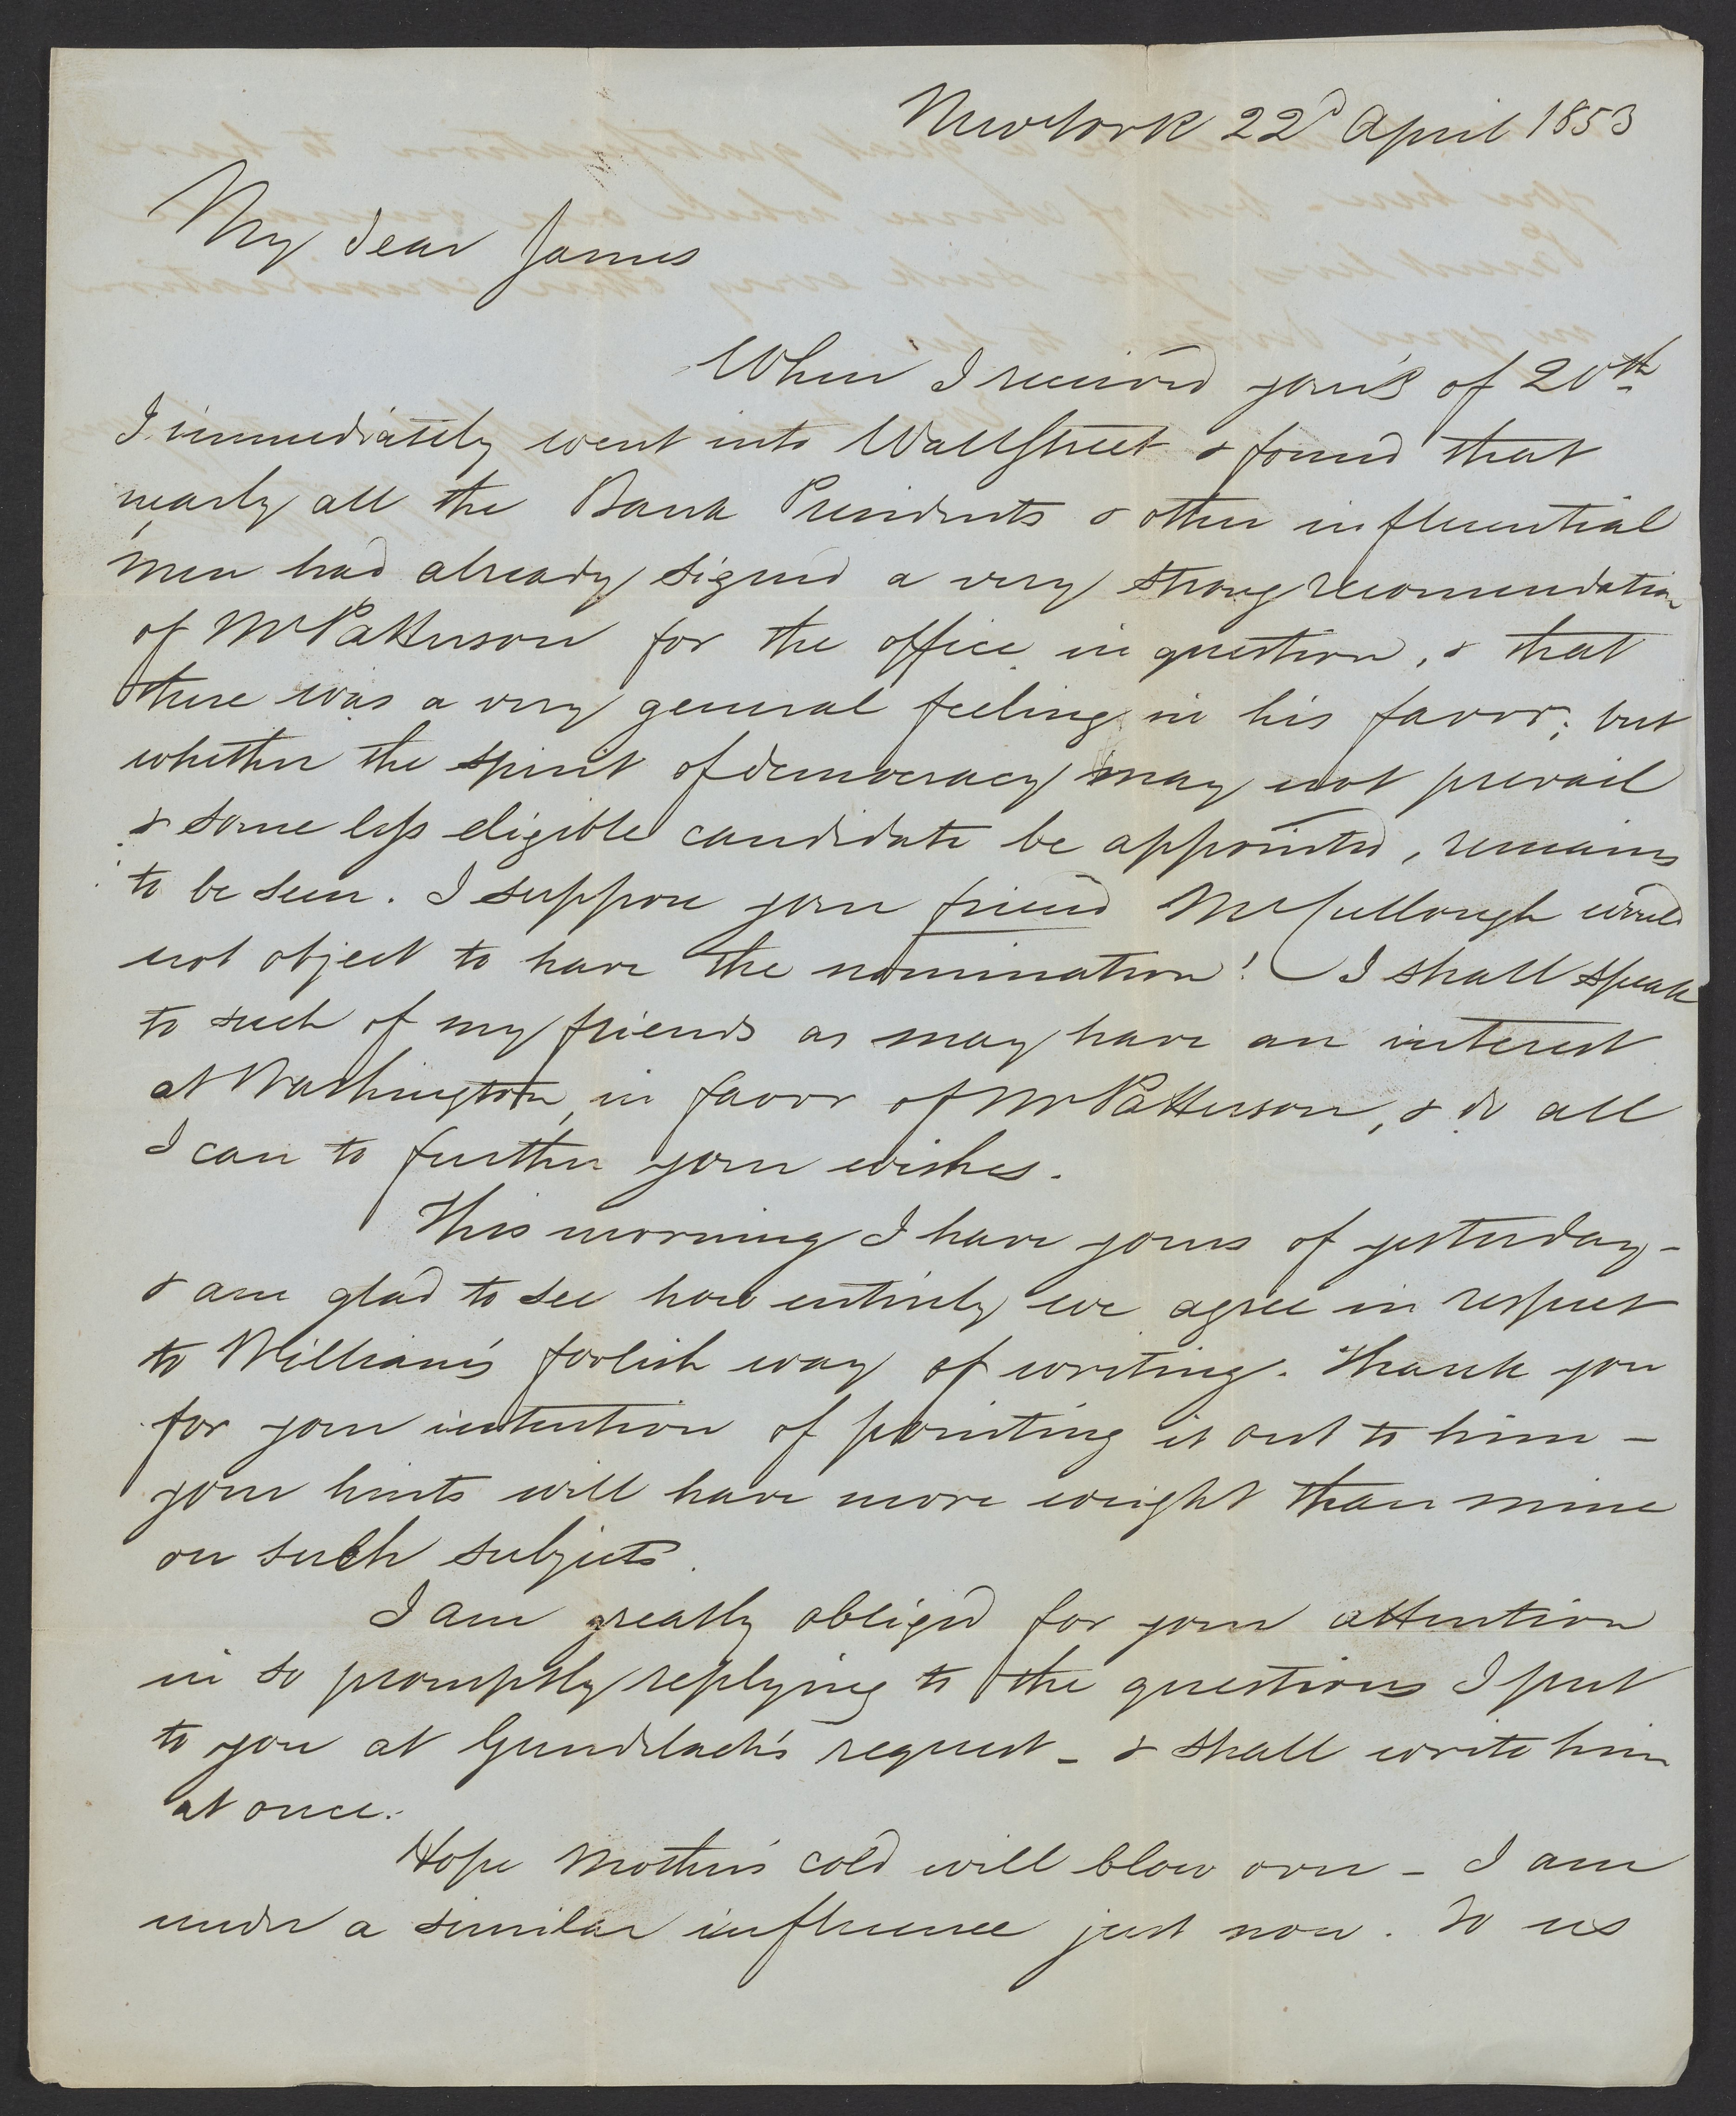 New York 22d April 1853
My dear James
When I received yours of 20th
I immediately went into Wall Street & found that
nearly all the Bank Presidents & other influential
men had already signed a very strong recomendation
of Mr Patterson for the office in question, & that
there was a very general feeling in his favor; but
whether the spirit of democracy may not prevail
& some less eligible candidate be appointed, remains
to be seen. I suppose your friend McCullough would
not object to have the nomination! I shall speak
to such of my friends as may have an interest
at Washington, in favor of Mr Patterson, & do all
I can to further your wishes.
This morning I have yours of yesterday –
& am glad to see how entirely we agree in respect
to William's foolish way of writing. Thank you
for your intention of pointing it out to him –
your hints will have more weight than mine
on such subjects.
I am greatly obliged for your attention
in so promptly replying to the questions I put
to you at Gundelach's request – & shall write him
at once.
Hope Mother's cold will blow over – I am
under a similar influence just now. To us